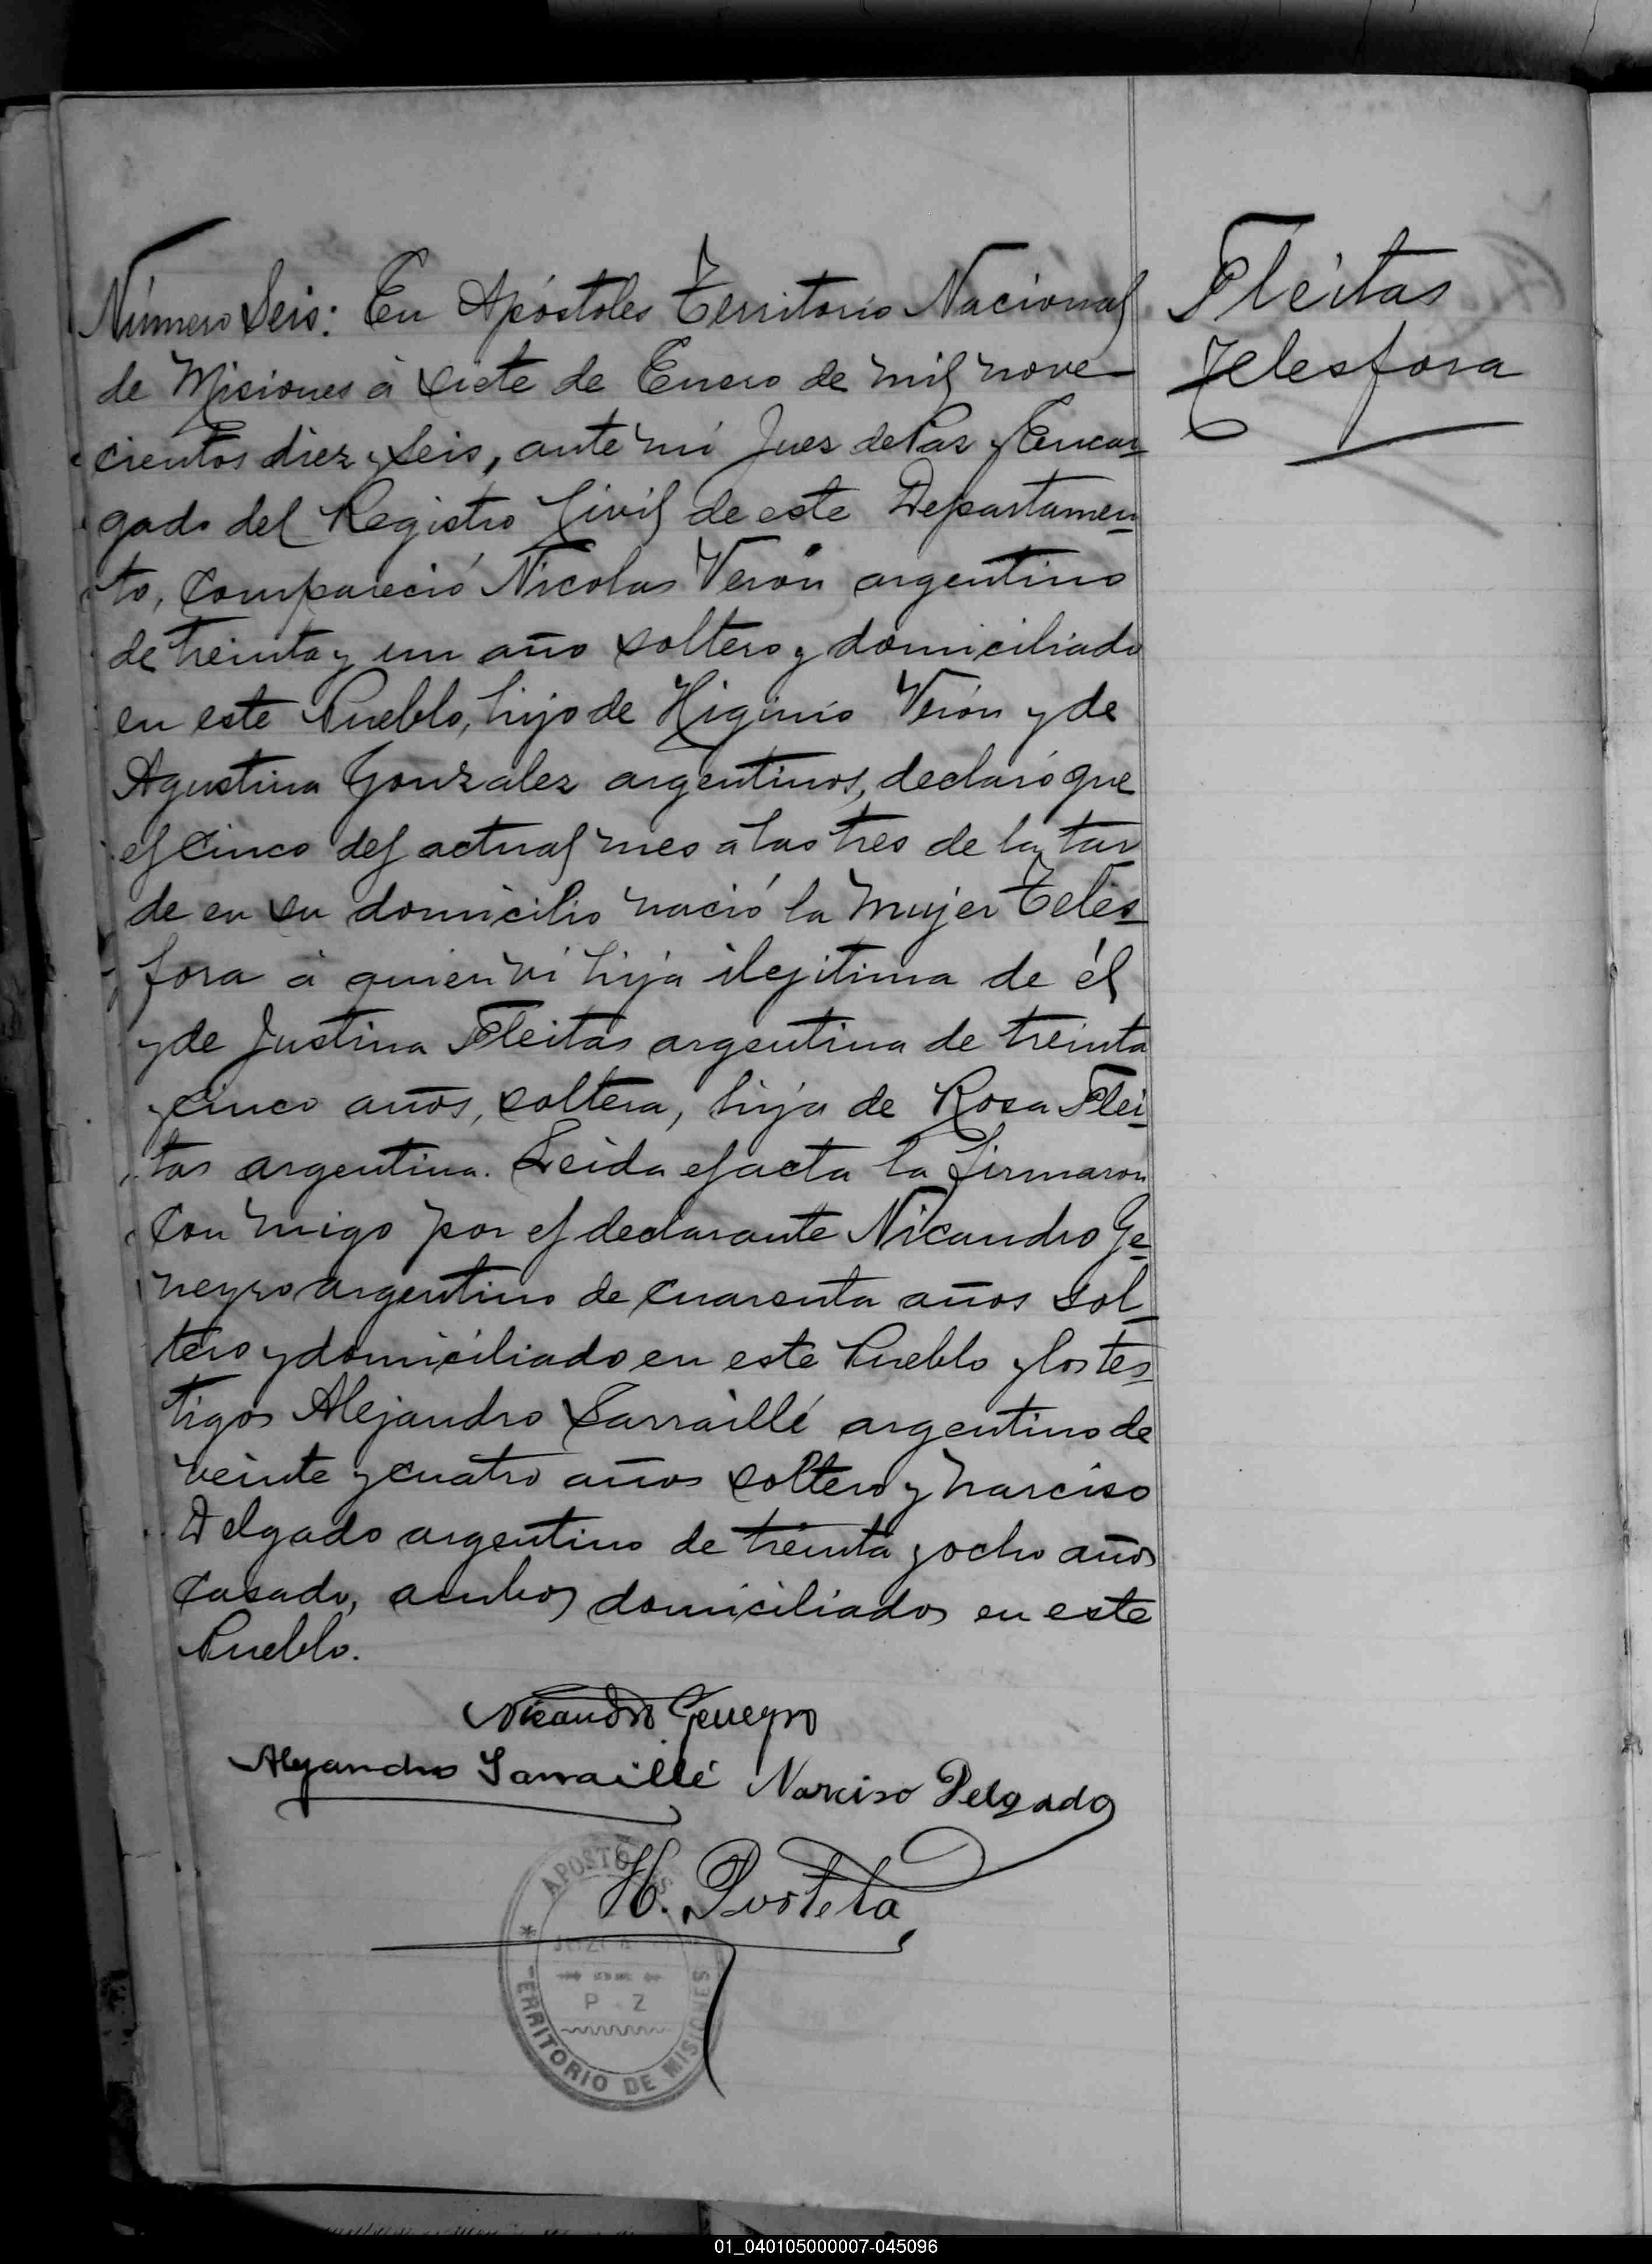 Número Seis: En Apóstoles Territorio Nacional
de Misiones à siete de Enero de mil nove
cientos diez y seis, ante mi Juez de Paz y Encar
gado del Registro Civil de este Departamen
to, Compareció Nicolas Verón argentino
de treinta y un año soltero y domiciliado
en este Pueblo, hijo de Higinio Verón y de
Agustina Gonzalez argentinos, declaró que
el Cinco del actual mes a las tres de la tar
de en su domicilio nació la mujer Teles
fora à quien vi hija ilegitima de él
y de Justina Fleitas argentina de treinta
y cinco años, soltera, hija de Rosa Flei
tas argentina. Leida el acta la firmaron
Con migo por el declarante Nicandro Ge
neyro argentino de cuarenta años sol
tero y domiciliado en este Pueblo y los tes
tigos Alejandro Sarraillé argentino de
veinte y cuatro años soltero y Narciso
Delgado argentino de treinta y ocho años
Casado, ambos domiciliados en este
Pueblo.
Fleitas
Telesfora
Nicandro Geneyro
Alejandro Sarraillé Narciso Delgado
H. Portela
APOSTOLES
P Z
TERRITORIO DE MISIONES
01_040105000007-045096